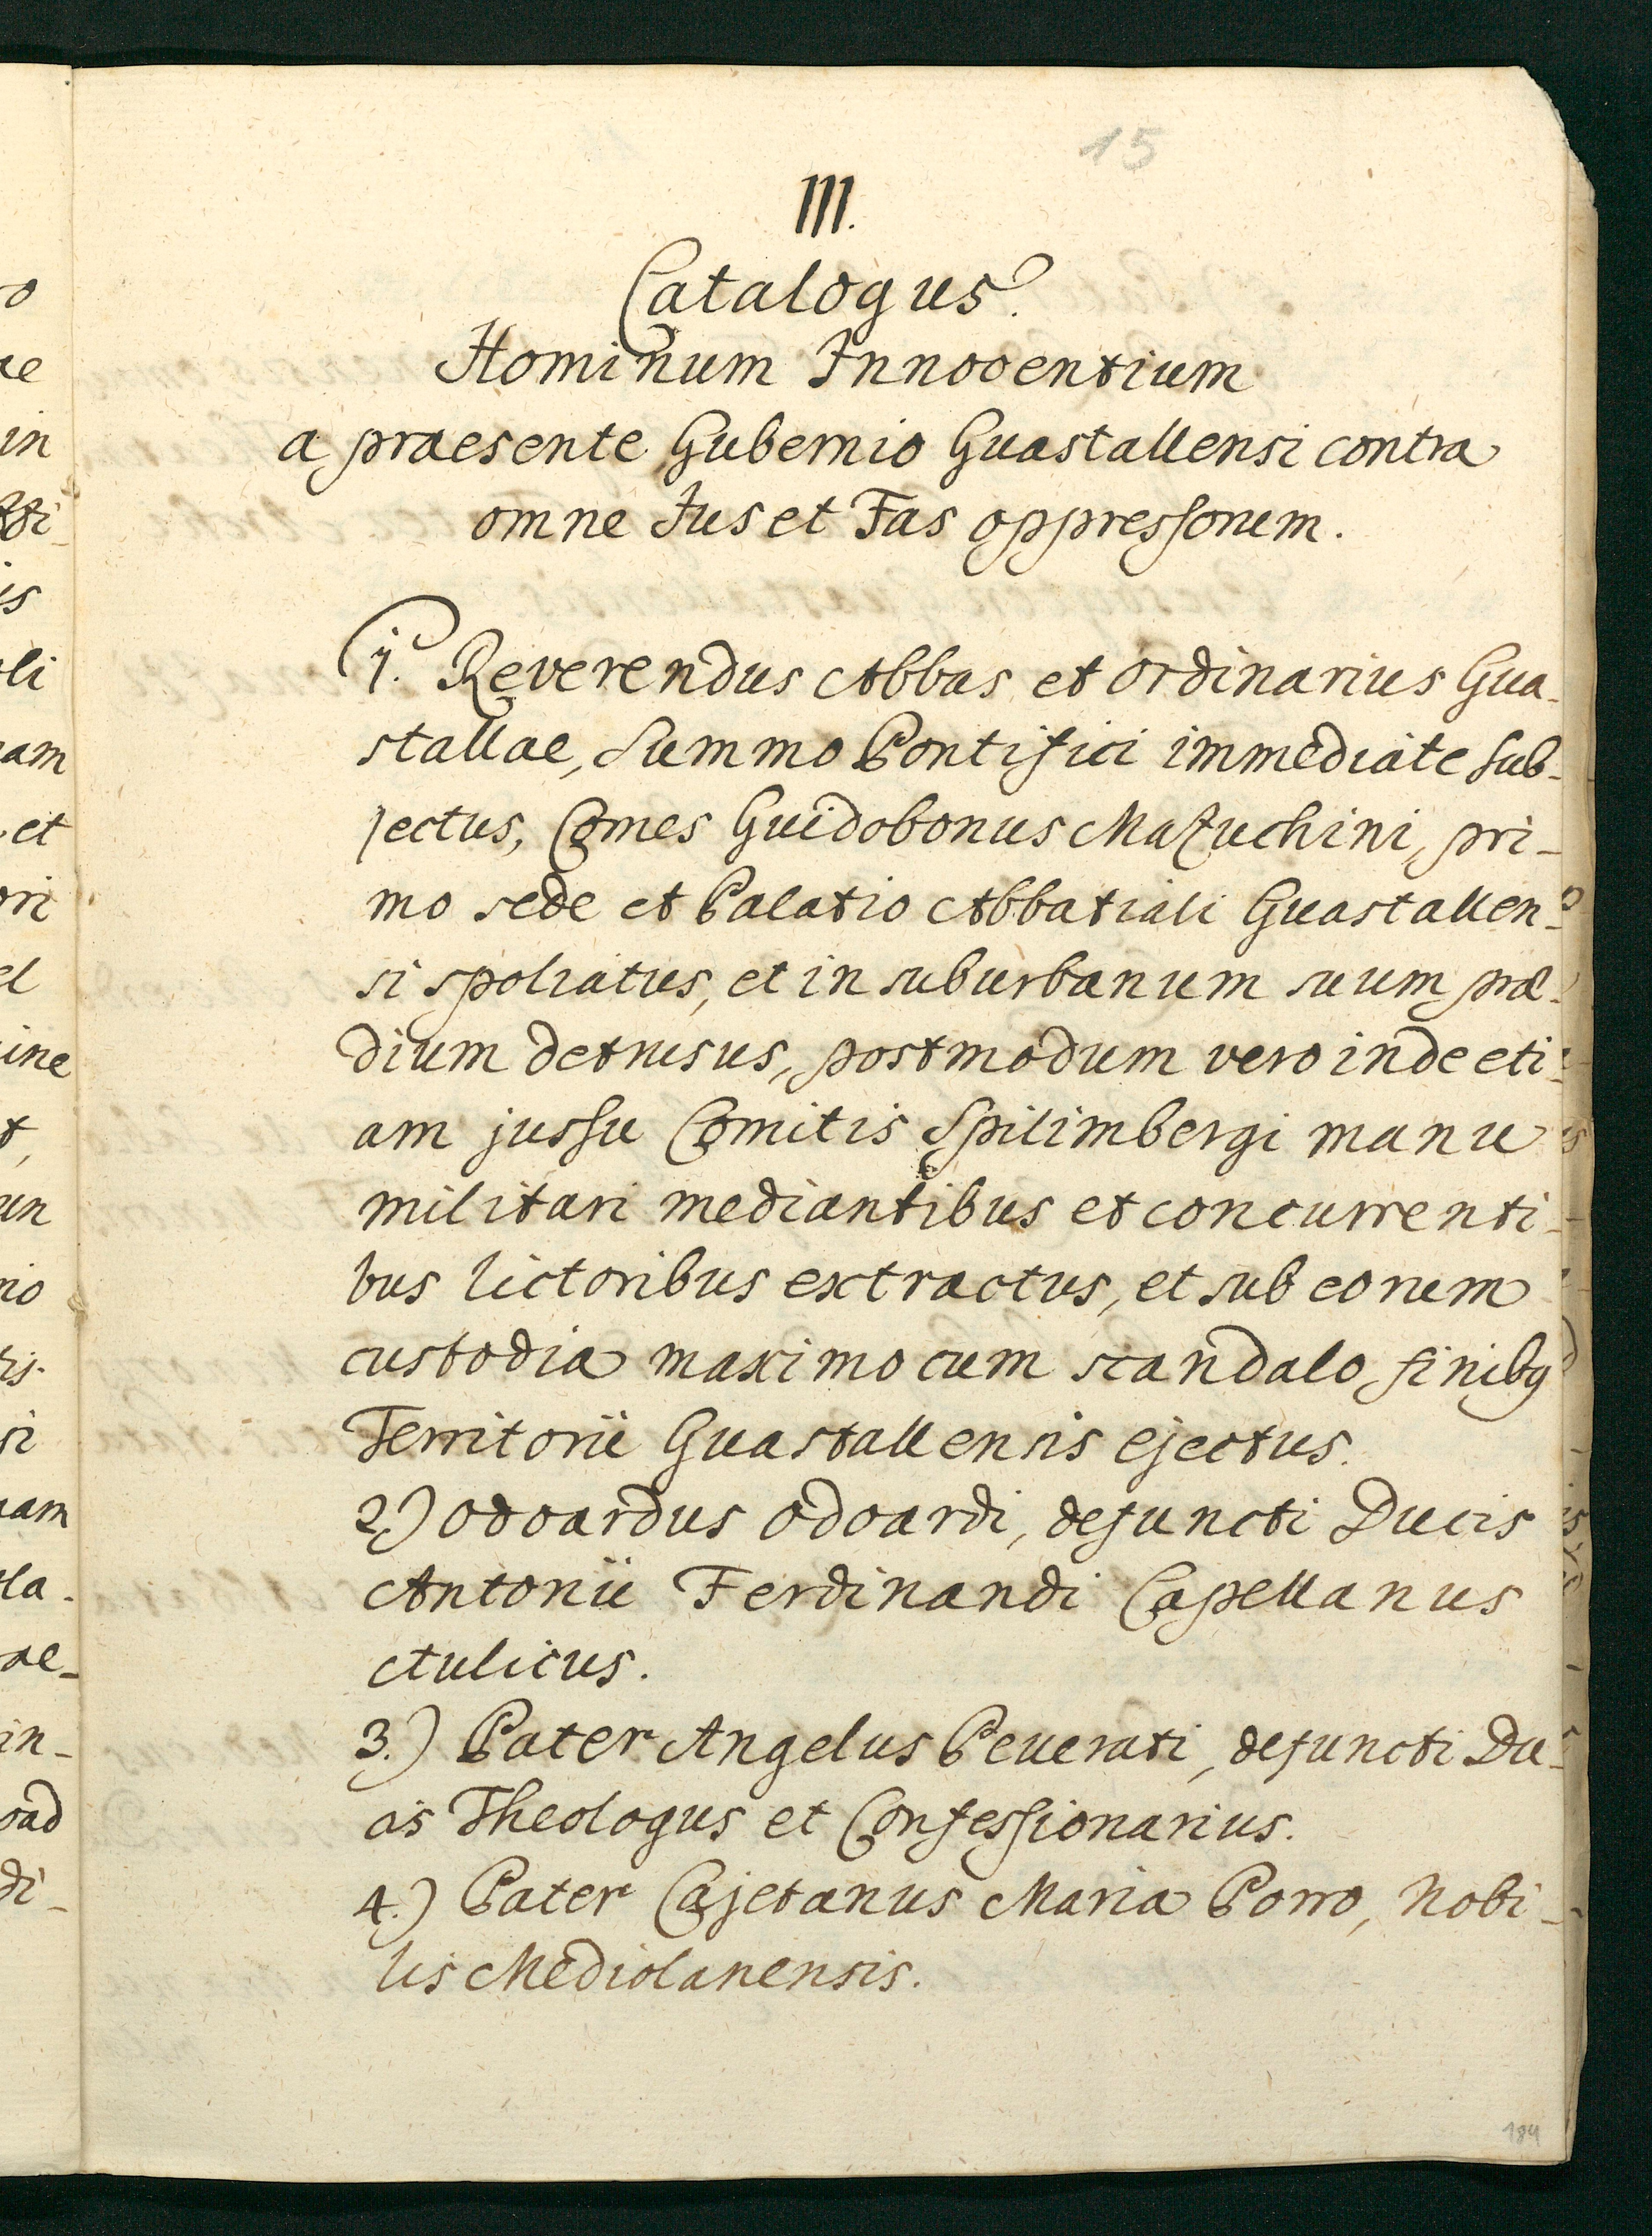 15
III.
Catalogus.
Hominum Innocentium
a praesente Gubernio Guastallensi contra
omne Jus et Fas oppressorum.
1. Reverendus Abbas et ordinarius Gua-
stallae, Summo Pontifici immediate sub-
jectus, Comes Guidobonus Mazuchini, pri-
mo sede et Palatio Abbatiali Guastallen-
si spoliatus, et in suburbanum suum præ-
dium detrusus, postmodum vero inde eti-
am jussu Comitis Spilimbergi manu
militari mediantibus et concurrenti-
bus lictoribus extractus, et sub eorum
custodia maximo cum scandalo finibq
Territorii Guastallensis ejectus.
2.) Odoardus Odoardi, defuncti Ducis
Antonii Ferdinandi Capellanus
Aulicus.
3.) Pater Angelus Peuerati, defuncti Du-
cis Theologus et Confessionarius.
4.) Pater Cajetanus Maria Porro, Nobi-
lis Mediolanensis.
184